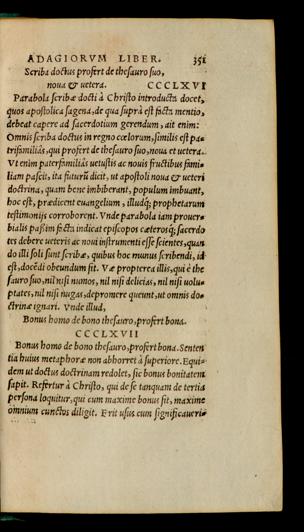 ADAGIORVM LIBER. 351
Scriba doctus profert de thesauro suo,
noua & uetera. CCCLXVI
Parabola scribæ docti à Christo introducta docet,
quos apostolica sagena, de qua suprà est facta mentio,
debeat capere ad sacerdotium gerendum, ait enim:
Omnis scriba doctus in regno cœlorum, similis est pa-
trifamiliâs, qui profert de thesauro suo, noua et uetera.
Vt enim paterfamiliâs uetustis ac nouis fructibus fami-
liam pascit, ita futurũ dicit, ut apostoli noua & ueteri
doctrina, quam bene imbiberant, populum imbuant,
hoc est, prædicent euangelium, illudq; prophetarum
testimonijs corroborent. Vnde parabola iam prouer-
bialis passim facta indicat episcopos cæterosq; sacerdo
tes debere ueteris ac noui instrumenti esse scientes, quan
do illi soli sunt scribæ, quibus hoc munus scribendi, id
est, docẽdi obeundum sit. Væ propterea illis, qui è the
sauro suo, nil nisi numos, nil nisi delicias, nil nisi uolu-
ptates, nil nisi nugas, depromere queunt, ut omnis do-
ctrinæ ignari. Vnde illud,
Bonus homo de bono thesauro, profert bona.
CCCLXVII
Bonus homo de bono thesauro, profert bona. Senten
tia huius metaphoræ non abhorret à superiore. Equi-
dem ut doctus doctrinam redolet, sic bonus bonitatem
sapit. Refertur à Christo, qui de se tanquam de tertia
persona loquitur, qui cum maxime bonus sit, maxime
omnium cunctos diligit. Erit usus cum significaueri-